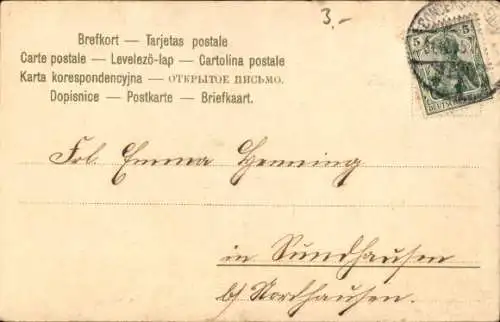 3.-
Brefkort — Tarjetas postale
Carte postale — Levelező-lap — Cartolina postale
Karta korespondencyjna — ОТКРЫТОЕ ПИСЬМО.
Dopisnice — Postkarte — Briefkaart.
5 5
Frl. Emma Henning
in Sundhausen
b/ Nordhausen.